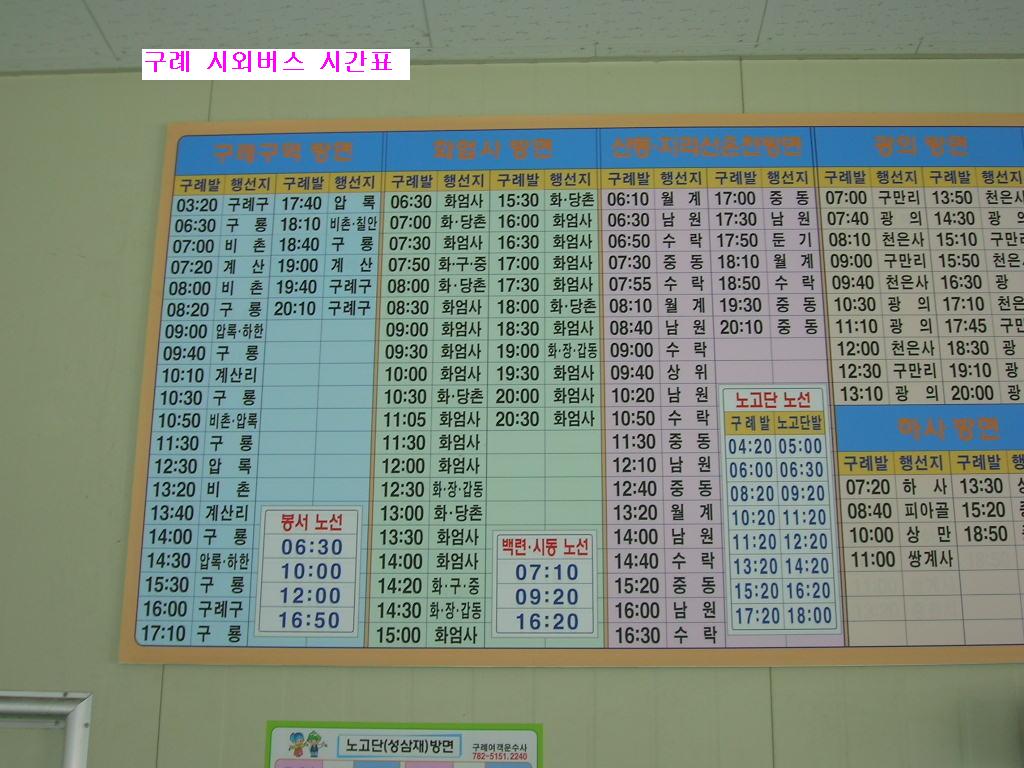 구례 시외버스 시간표
구례구역 방면
구례발 행선지 구례발 행선지
03:20 구례구 17:40 압 록
06:30 구 룡 18:10 비촌·칠안
07:00 비 촌 18:40 구 룡
07:20 계 산 19:00 계 산
08:00 비 촌 19:40 구례구
08:20 구 룡 20:10 구례구
09:00 압록·하한
09:40 구 룡
10:10 계산리
10:30 구 룡
10:50 비촌·압록
11:30 구 룡
12:30 압 록
13:20 비 촌
13:40 계산리
14:00 구 룡
14:30 압록·하한
15:30 구 룡
16:00 구례구
17:10 구 룡
봉서 노선
06:30
10:00
12:00
16:50
화엄사 방면
구례발 행선지 구례발 행선지
06:30 화엄사 15:30 화·당촌
07:00 화·당촌 16:00 화엄사
07:30 화엄사 16:30 화엄사
07:50 화·구·중 17:00 화엄사
08:00 화·당촌 17:30 화엄사
08:30 화엄사 18:00 화·당촌
09:00 화엄사 18:30 화엄사
09:30 화엄사 19:00 화·장·갑동
10:00 화엄사 19:30 화엄사
10:30 화·당촌 20:00 화엄사
11:05 화엄사 20:30 화엄사
11:30 화엄사
12:00 화엄사
12:30 화·장·갑동
13:00 화·당촌
13:30 화엄사
14:00 화엄사
14:20 화·구·중
14:30 화·장·갑동
15:00 화엄사
백련·시동 노선
07:10
09:20
16:20
산동·지리산온천방면
구례발 행선지 구례발 행선지
06:10 월 계 17:00 중 동
06:30 남 원 17:30 남 원
06:50 수 락 17:50 둔 기
07:30 중 동 18:10 월 계
07:55 수 락 18:50 수 락
08:10 월 계 19:30 중 동
08:40 남 원 20:10 중 동
09:00 수 락
09:40 상 위
10:20 남 원
10:50 수 락
11:30 중 동
12:10 남 원
12:40 중 동
13:20 월 계
14:00 남 원
14:40 수 락
15:20 중 동
16:00 남 원
16:30 수 락
노고단 노선
구례발 노고단발
04:20 05:00
06:00 06:30
08:20 09:20
10:20 11:20
11:20 12:20
13:20 14:20
15:20 16:20
17:20 18:00
광의 방면
구례발 행선지 구례발 행선지
07:00 구만리 13:50 천은사
07:40 광 의 14:30 광
08:10 천은사 15:10 구만리
09:00 구만리 15:50 천은
09:40 천은사 16:30 광
10:30 광 의 17:10 천은
11:10 광 의 17:45 구만
12:00 천은사 18:30 광
12:30 구만리 19:10 광
13:10 광 의 20:00 광
하사 방면
구례발 행선지 구례발
07:20 하 사 13:30
08:40 피아골 15:20
10:00 상 만 18:50
11:00 쌍계사
노고단(성삼재)방면
구례여객운수사
782-5151.2240